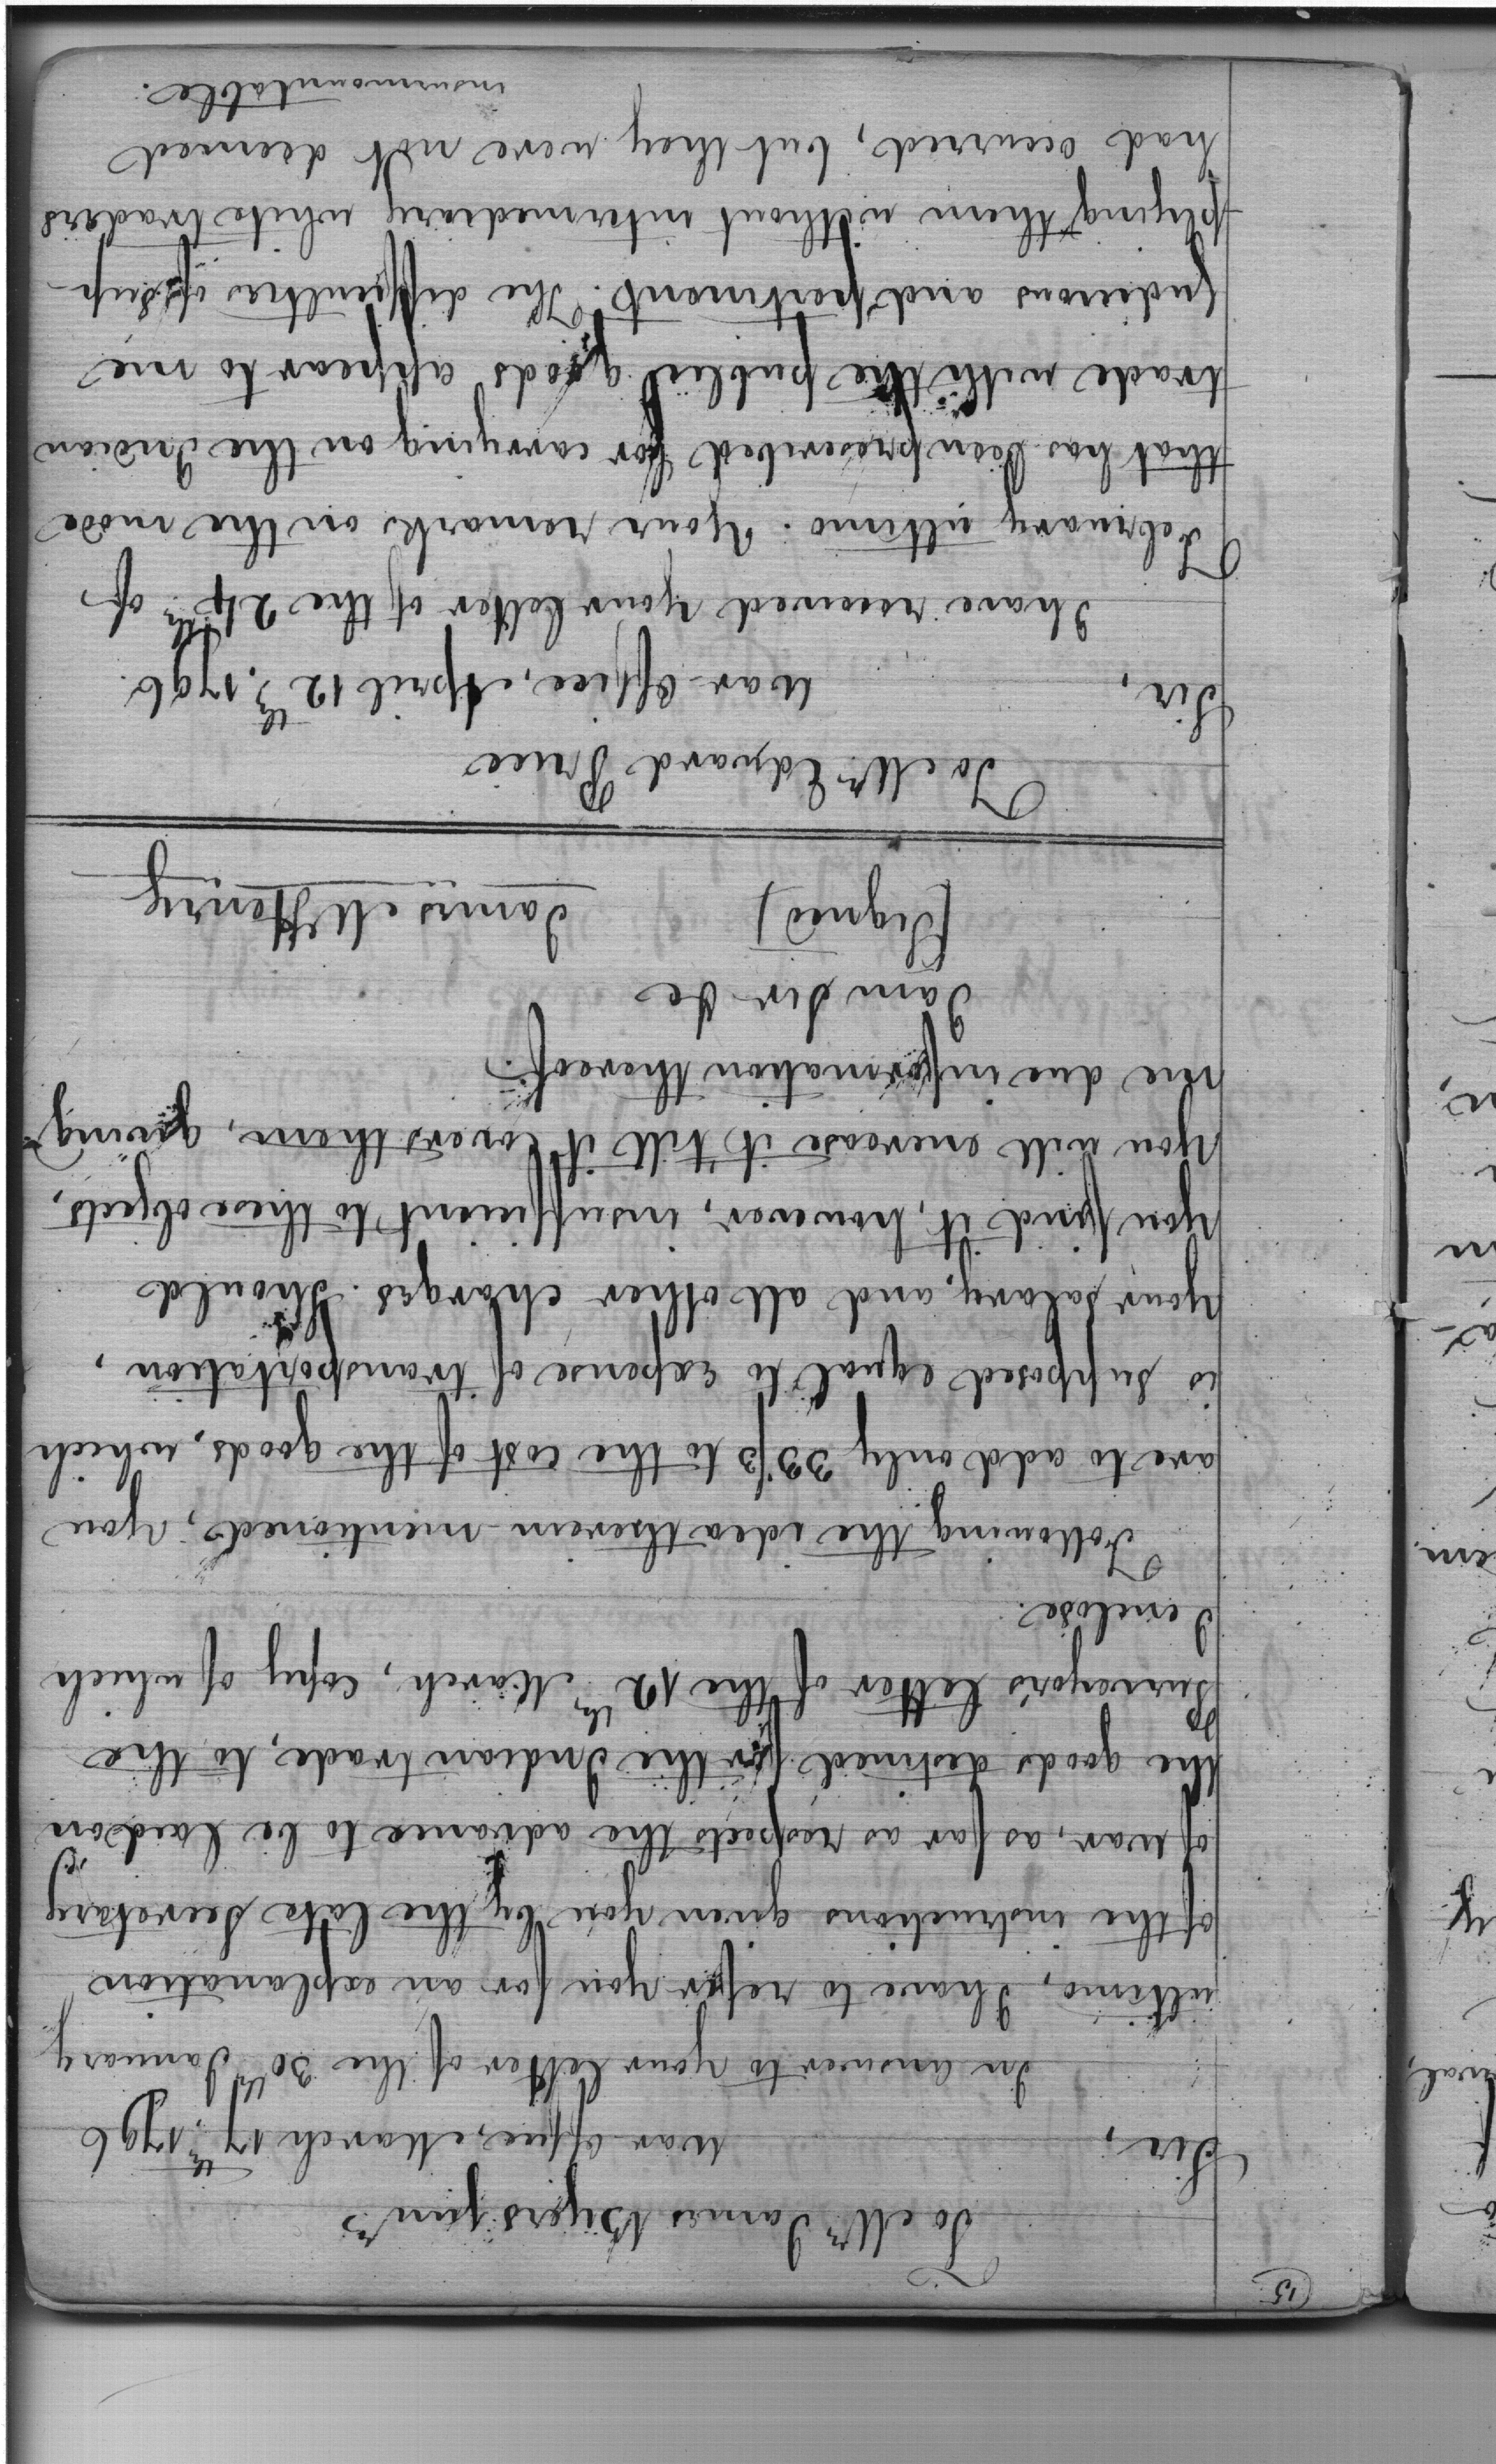 15
To Mr James Byers junr
Sir, War office, March 17th 1796
In answer to your letter of the 30th January
ultimo, I have to refer you for an explanation
of the instructions given you by the late Secretary
of War, as far as respects the advance to be laid on
the goods destined for the Indian trade, to the
Purveyors letter of the 12th March, Copy of which
I enclose.
Following the idea therein mentioned, you
are to add only 33 1/3 to the cost of the goods, which
is supposed equal to expense of transportation,
your salary, and all other charges. Should
you find it, however, insufficient to these objects,
you will encrease it till it covers them, giving
me due information thereof.
I am Sir &c
(Signed) James McHenry
To Mr Edward Price
Sir, War-Office, April 12th, 1796.
I have received your letter of the 24th of
February ultimo. Your remarks on the mode
that has been prescribed for carrying on the Indian
trade with the public goods appear to me
judicious and pertinent. The difficulties of sup-
plying them without intermediary white traders
had occurred, but they were not deemed
insurmountable.